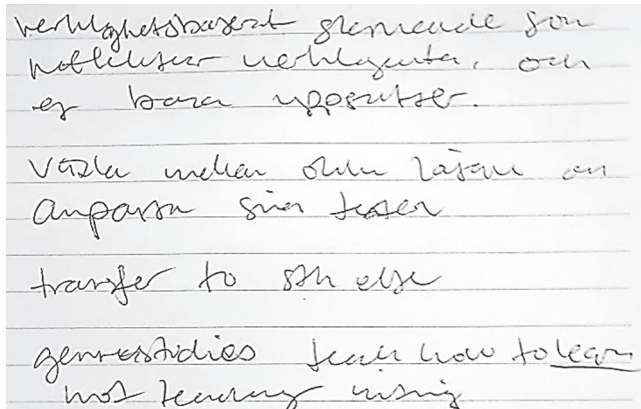 verklighetsbaserat skrivande som
verkligheten, och
ej bara uppsatser.
Växla mellan olika läsare och
anpassa sina texter
transfer to sth else
genrestudies teach how to learn
not learning writing